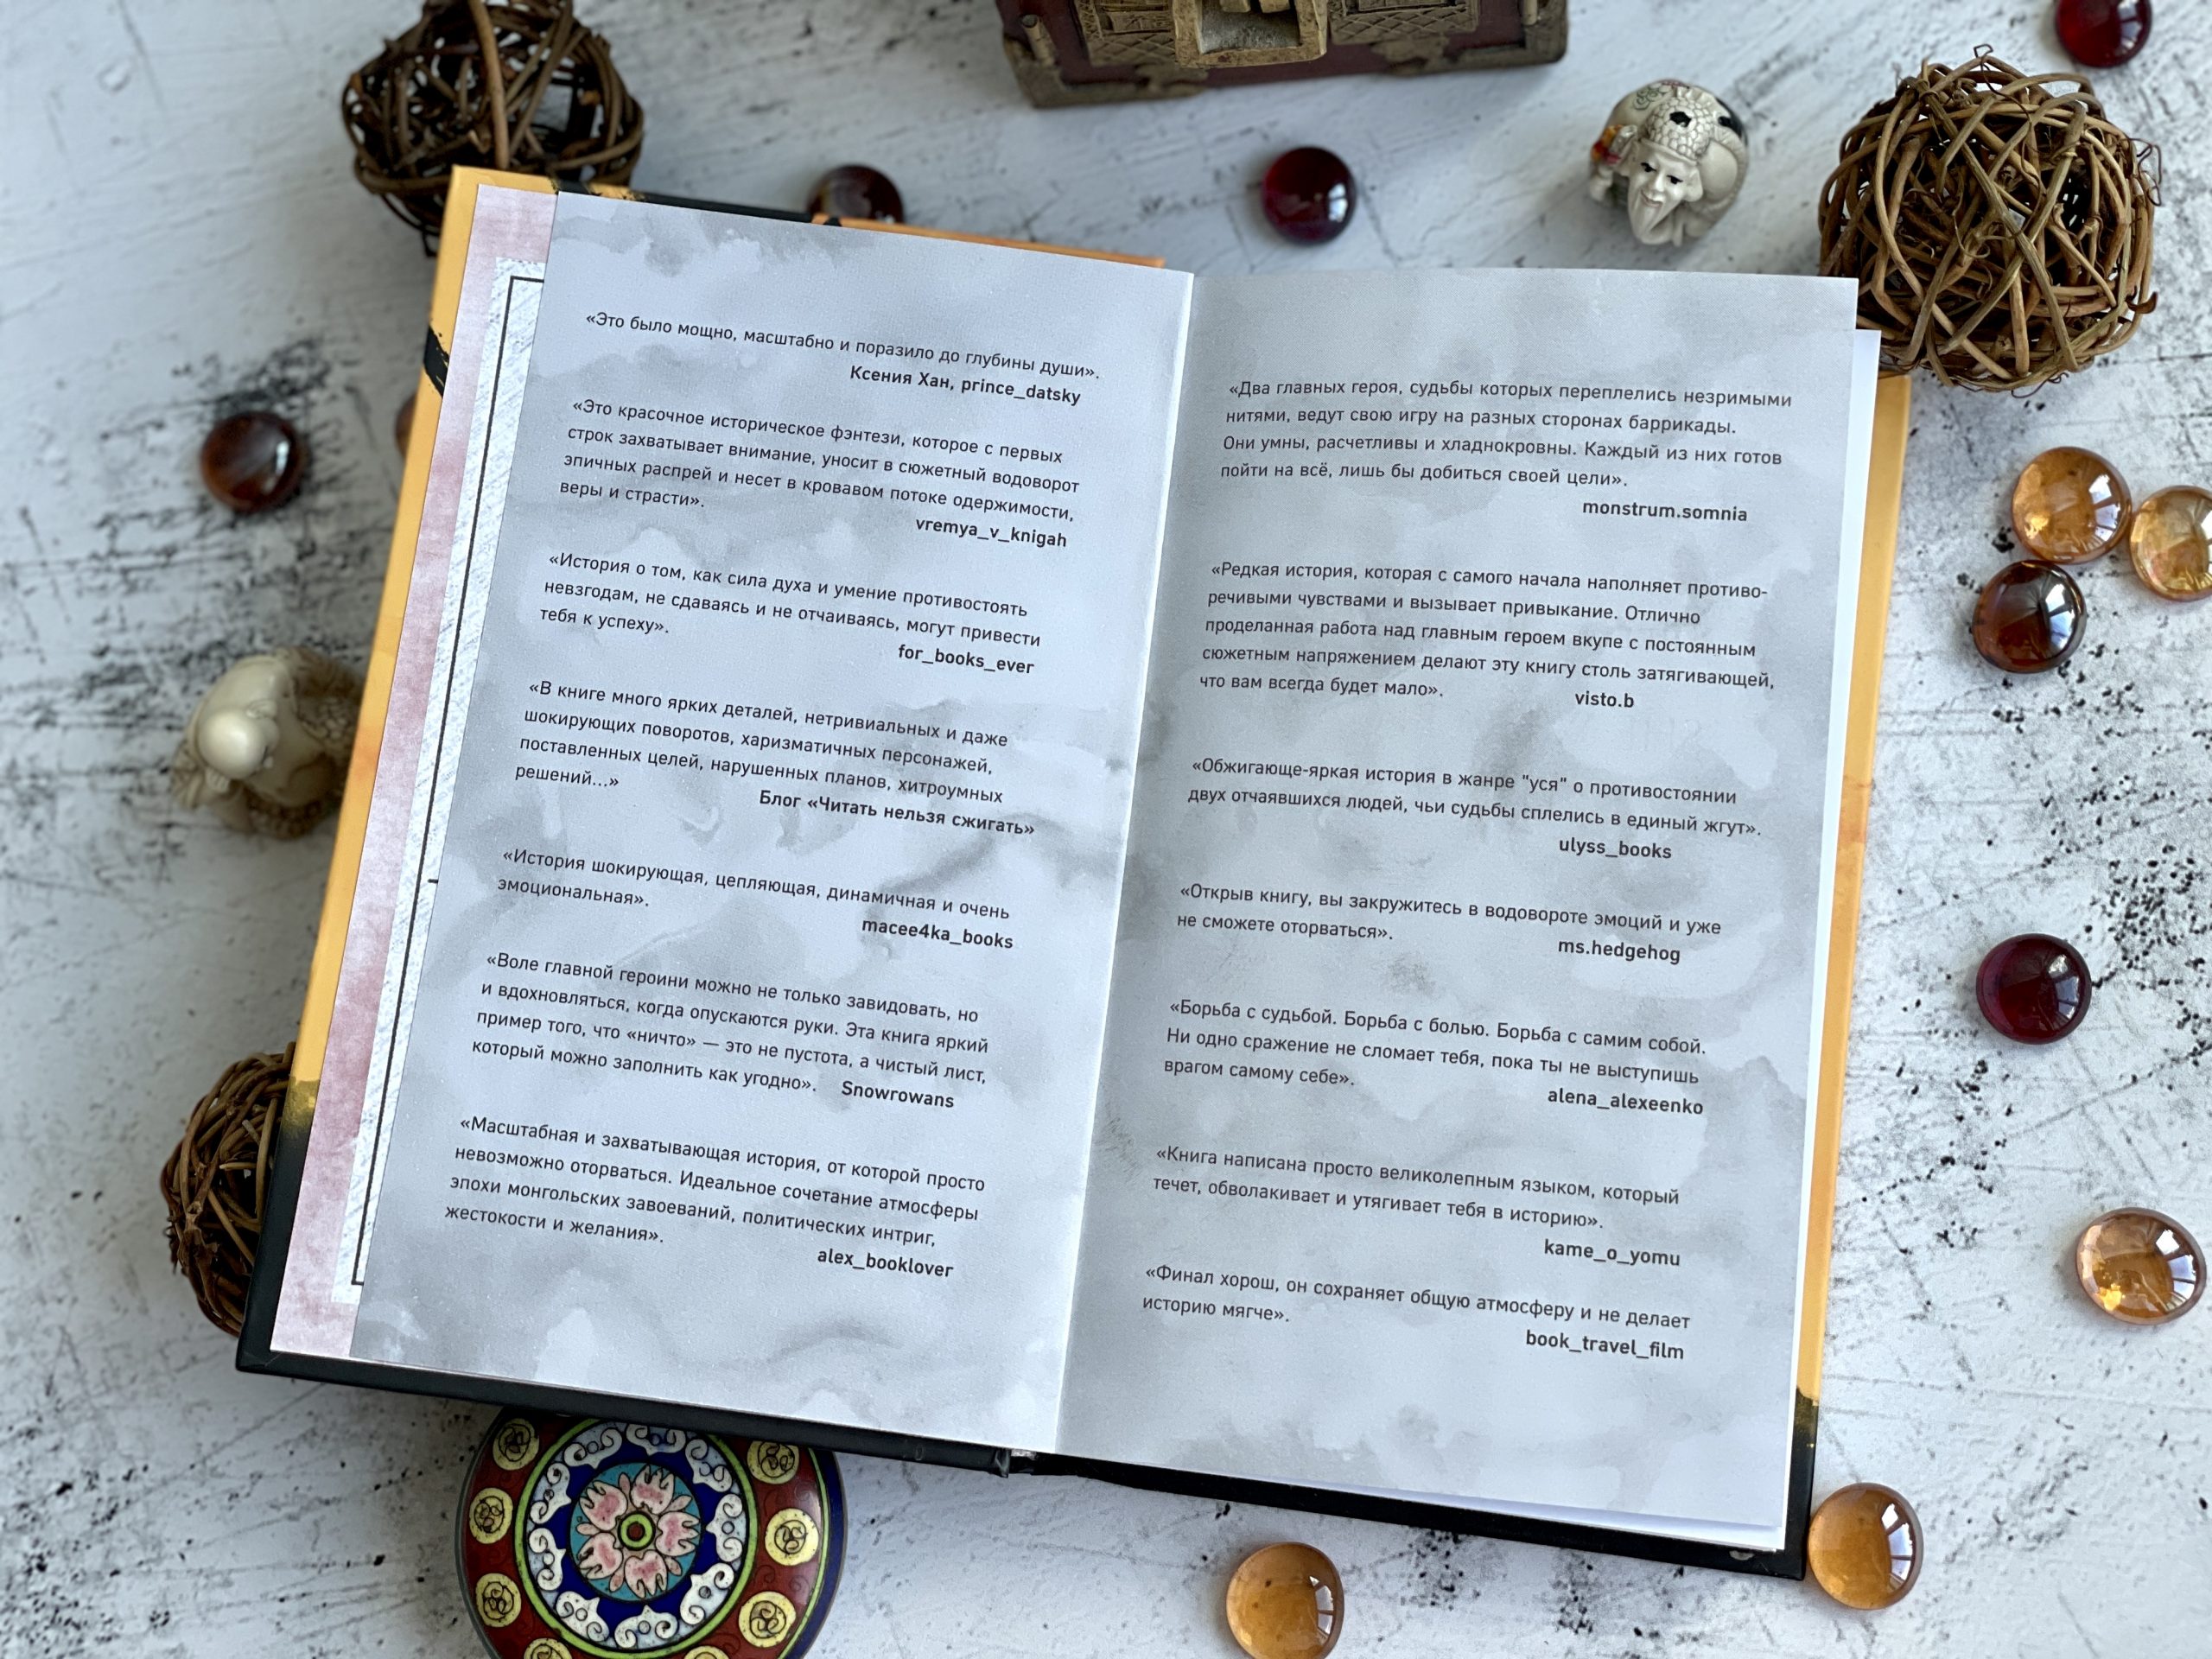 «Это было мощно, масштабно и поразило до глубины души».
Ксения Хан, prince_datsky
«Это красочное историческое фэнтези, которое с первых
строк захватывает внимание, уносит в сюжетный водоворот
эпичных распрей и несет в кровавом потоке одержимости,
веры и страсти».
vremya_v_knigah
«История о том, как сила духа и умение противостоять
невзгодам, не сдаваясь и не отчаиваясь, могут привести
тебя к успеху».
for_books_ever
«В книге много ярких деталей, нетривиальных и даже
шокирующих поворотов, харизматичных персонажей,
поставленных целей, нарушенных планов, хитроумных
решений...»
Блог «Читать нельзя сжигать»
«История шокирующая, цепляющая, динамичная и очень
эмоциональная».
macee4ka_books
«Воле главной героини можно не только завидовать, но
и вдохновляться, когда опускаются руки. Эта книга яркий
пример того, что «ничто» — это не пустота, а чистый лист,
который можно заполнить как угодно».
Snowrowans
«Масштабная и захватывающая история, от которой просто
невозможно оторваться. Идеальное сочетание атмосферы
эпохи монгольских завоеваний, политических интриг,
жестокости и желания».
alex_booklover
«Два главных героя, судьбы которых переплелись незримыми
нитями, ведут свою игру на разных сторонах баррикады.
Они умны, расчетливы и хладнокровны. Каждый из них готов
пойти на всё, лишь бы добиться своей цели».
monstrum.somnia
«Редкая история, которая с самого начала наполняет противо-
речивыми чувствами и вызывает привыкание. Отлично
проделанная работа над главным героем вкупе с постоянным
сюжетным напряжением делают эту книгу столь затягивающей,
что вам всегда будет мало».
visto.b
«Обжигающе-яркая история в жанре "уся" о противостоянии
двух отчаявшихся людей, чьи судьбы сплелись в единый жгут».
ulyss_books
«Открыв книгу, вы закружитесь в водовороте эмоций и уже
не сможете оторваться».
ms.hedgehog
«Борьба с судьбой. Борьба с болью. Борьба с самим собой.
Ни одно сражение не сломает тебя, пока ты не выступишь
врагом самому себе».
alena_alexeenko
«Книга написана просто великолепным языком, который
течет, обволакивает и утягивает тебя в историю».
kame_o_yomu
«Финал хорош, он сохраняет общую атмосферу и не делает
историю мягче».
book_travel_film